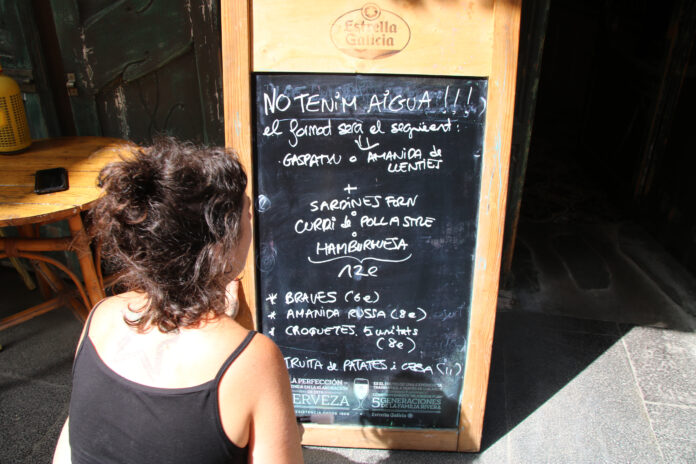 Estrella
Galicia
NO TENIM AIGUA!!!
el format serà el següent:
GASPATXU o AMANIDA de
LLENTIES
+
SARDINES FORN
o
CURRI de POLLASTRE
o
HAMBURGUESA
12e
* BRAVES (6e)
* AMANIDA RUSSA (8e)
* CROQUETES. 5 unitats
(8e)
TRUITA de PATATES i CEBA (11)
LA PERFECCIÓN
CERVEZA
5 GENERACIONES
DE LA FAMILIA RIVERA
Estrella Galicia